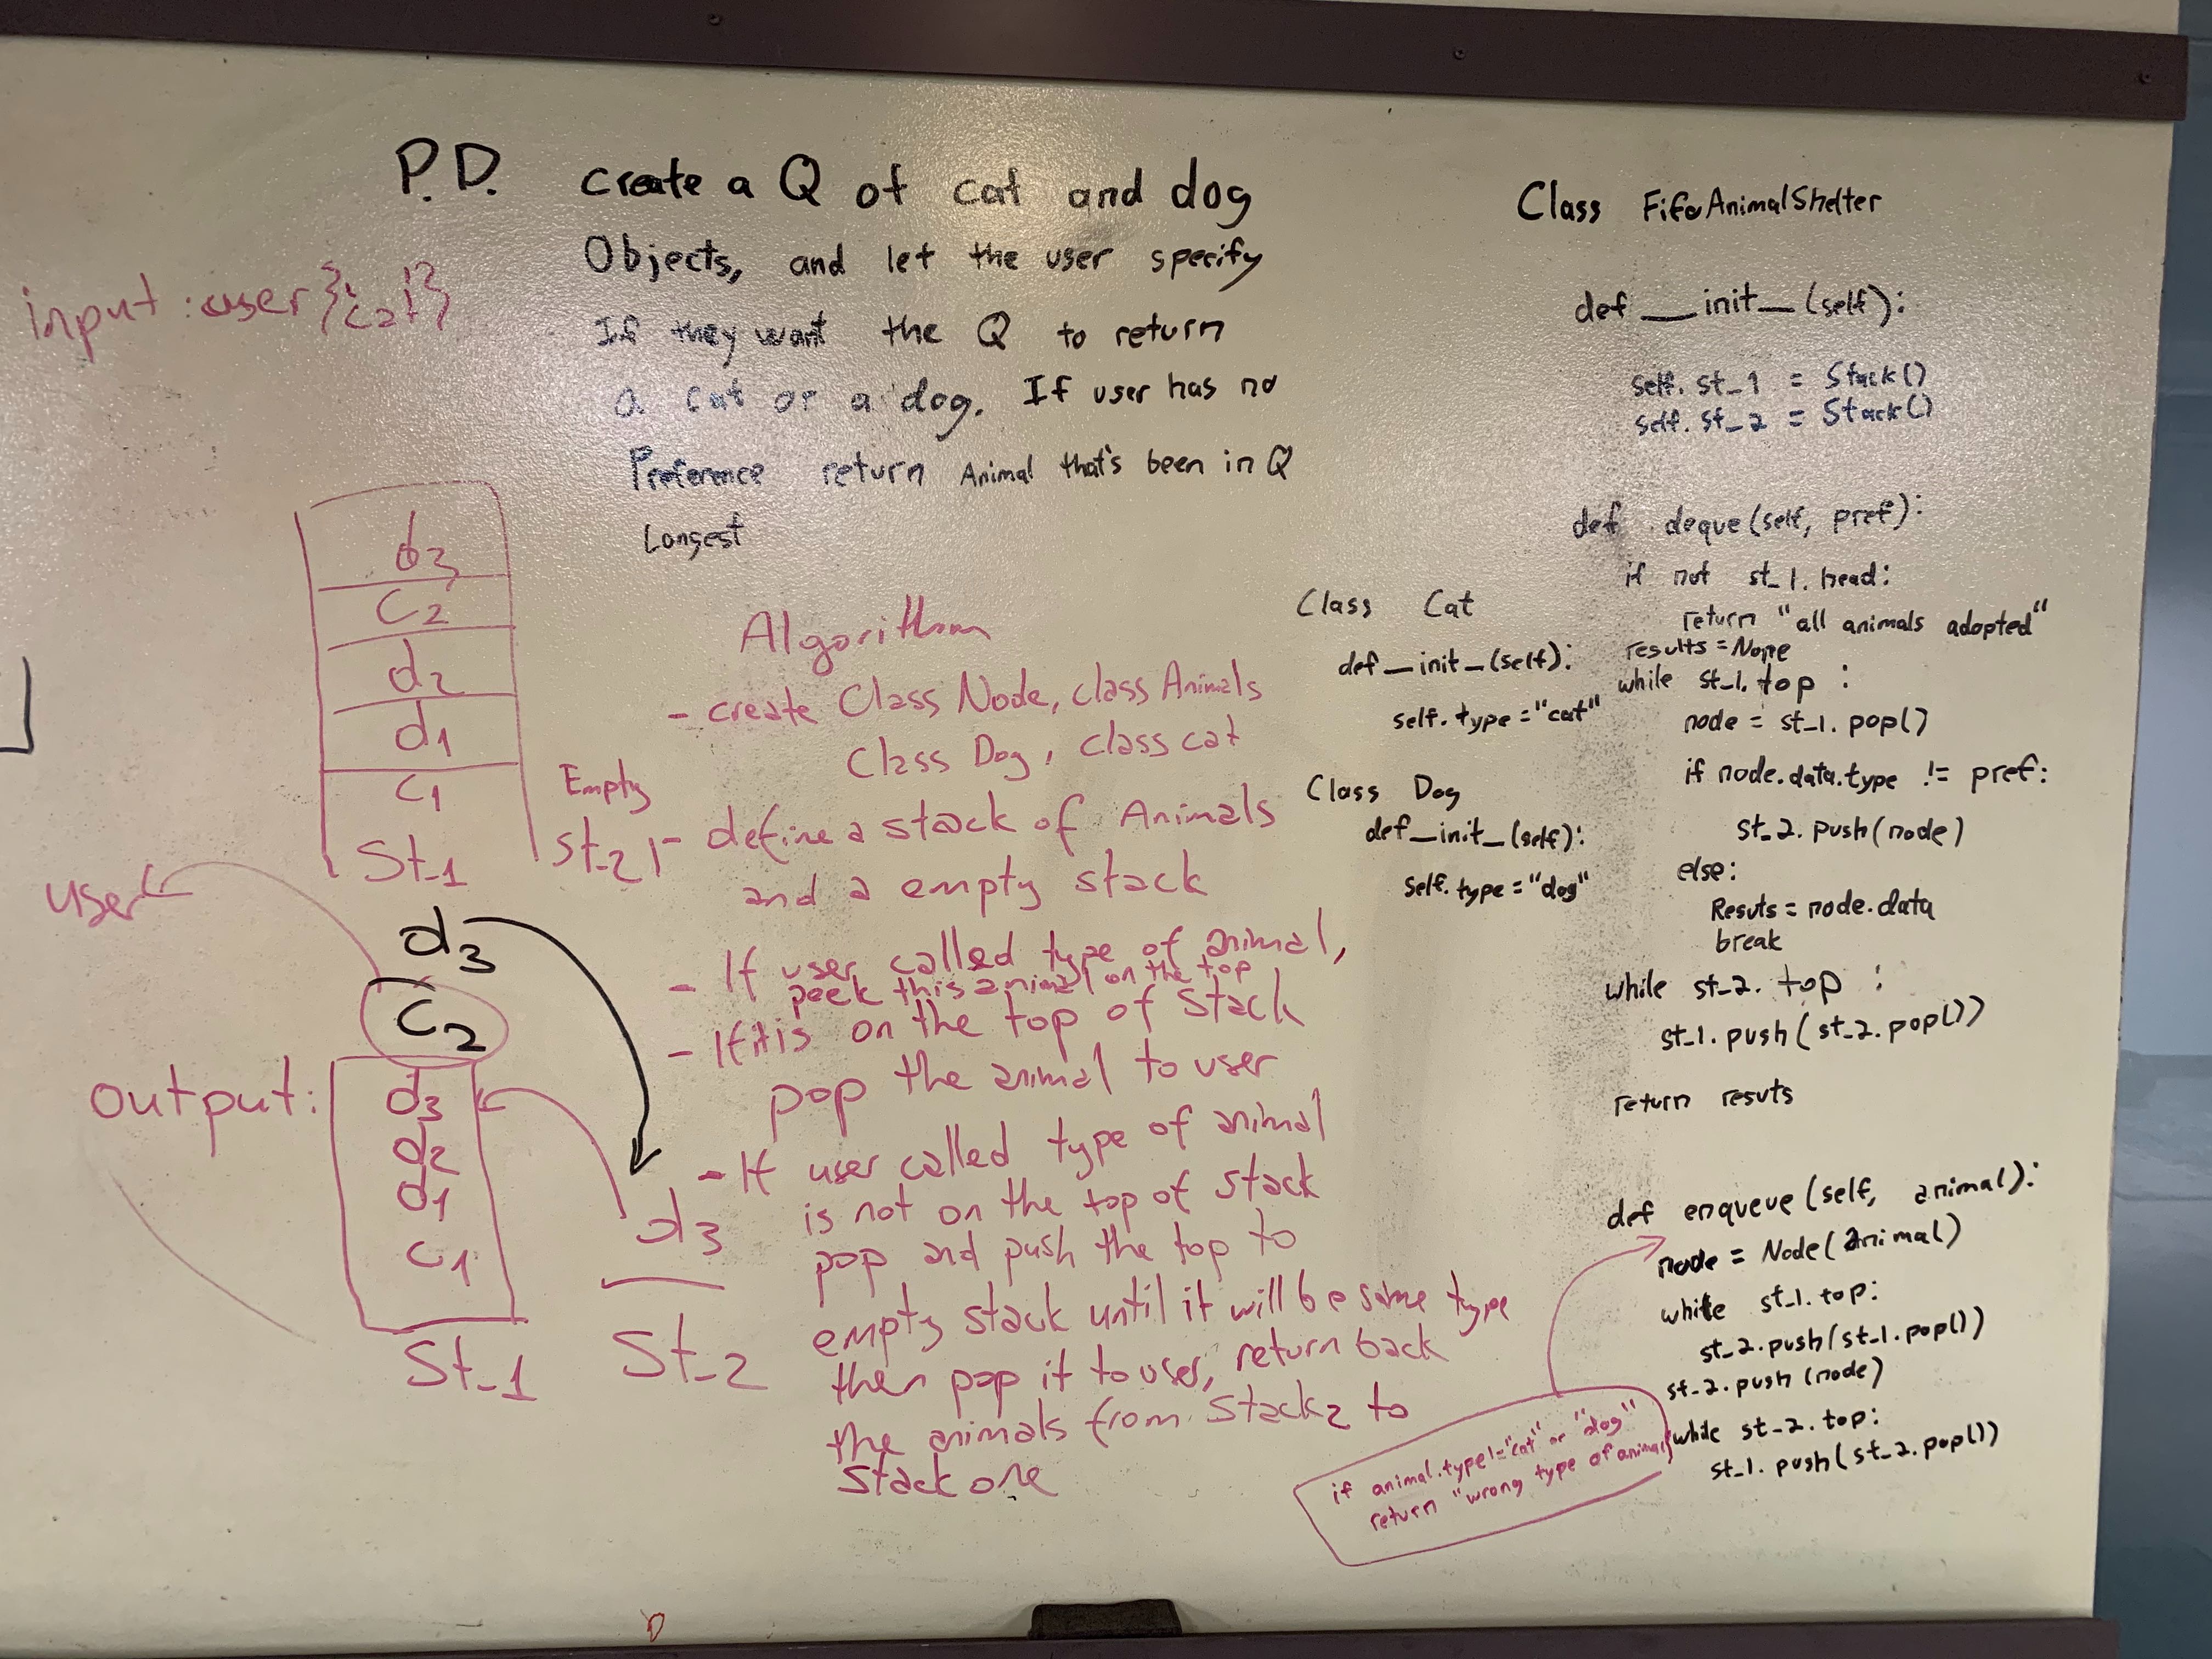 P.D. create a Q of cat and dog
Objects, and let the user specify
If they want the Q to return
a cat or a dog. If user has no
Preference return Animal that's been in Q
Longest
input : user {'cat'}
d3
c2
d2
d1
c1
St_1
Empty
st_2
user
d3
c2
output:
d3
d2
d1
c1
St_1
d3
St_2
Algorithm
- create Class Node, class Animals
Class Dog, class cat
- define a stack of Animals
and a empty stack
- If user called type of animal,
peek this animal on the top
- If it is on the top of Stack
pop the animal to user
- If user called type of animal
is not on the top of stack
pop and push the top to
empty stack until it will be same type
then pop it to user, return back
the animals from Stack2 to
stack one
Class Cat
def __init_(self):
self.type = "cat"
Class Dog
def __init_(self):
self.type = "dog"
Class FifoAnimalShelter
def __init_(self):
self.st_1 = Stack()
self.st_2 = Stack()
def deque(self, pref):
if not st_1.head:
return "all animals adopted"
results = None
while st_1.top :
node = st_1.pop()
if node.data.type != pref:
st_2.push(node)
else:
Resuts = node.data
break
while st_2.top :
st_1.push(st_2.pop())
return resuts
def enqueue(self, animal):
node = Node(animal)
while st_1.top:
st_2.push(st_1.pop())
st_2.push(node)
while st_2.top:
st_1.push(st_2.pop())
if animal.type != "cat" or "dog"
return "wrong type of animal"